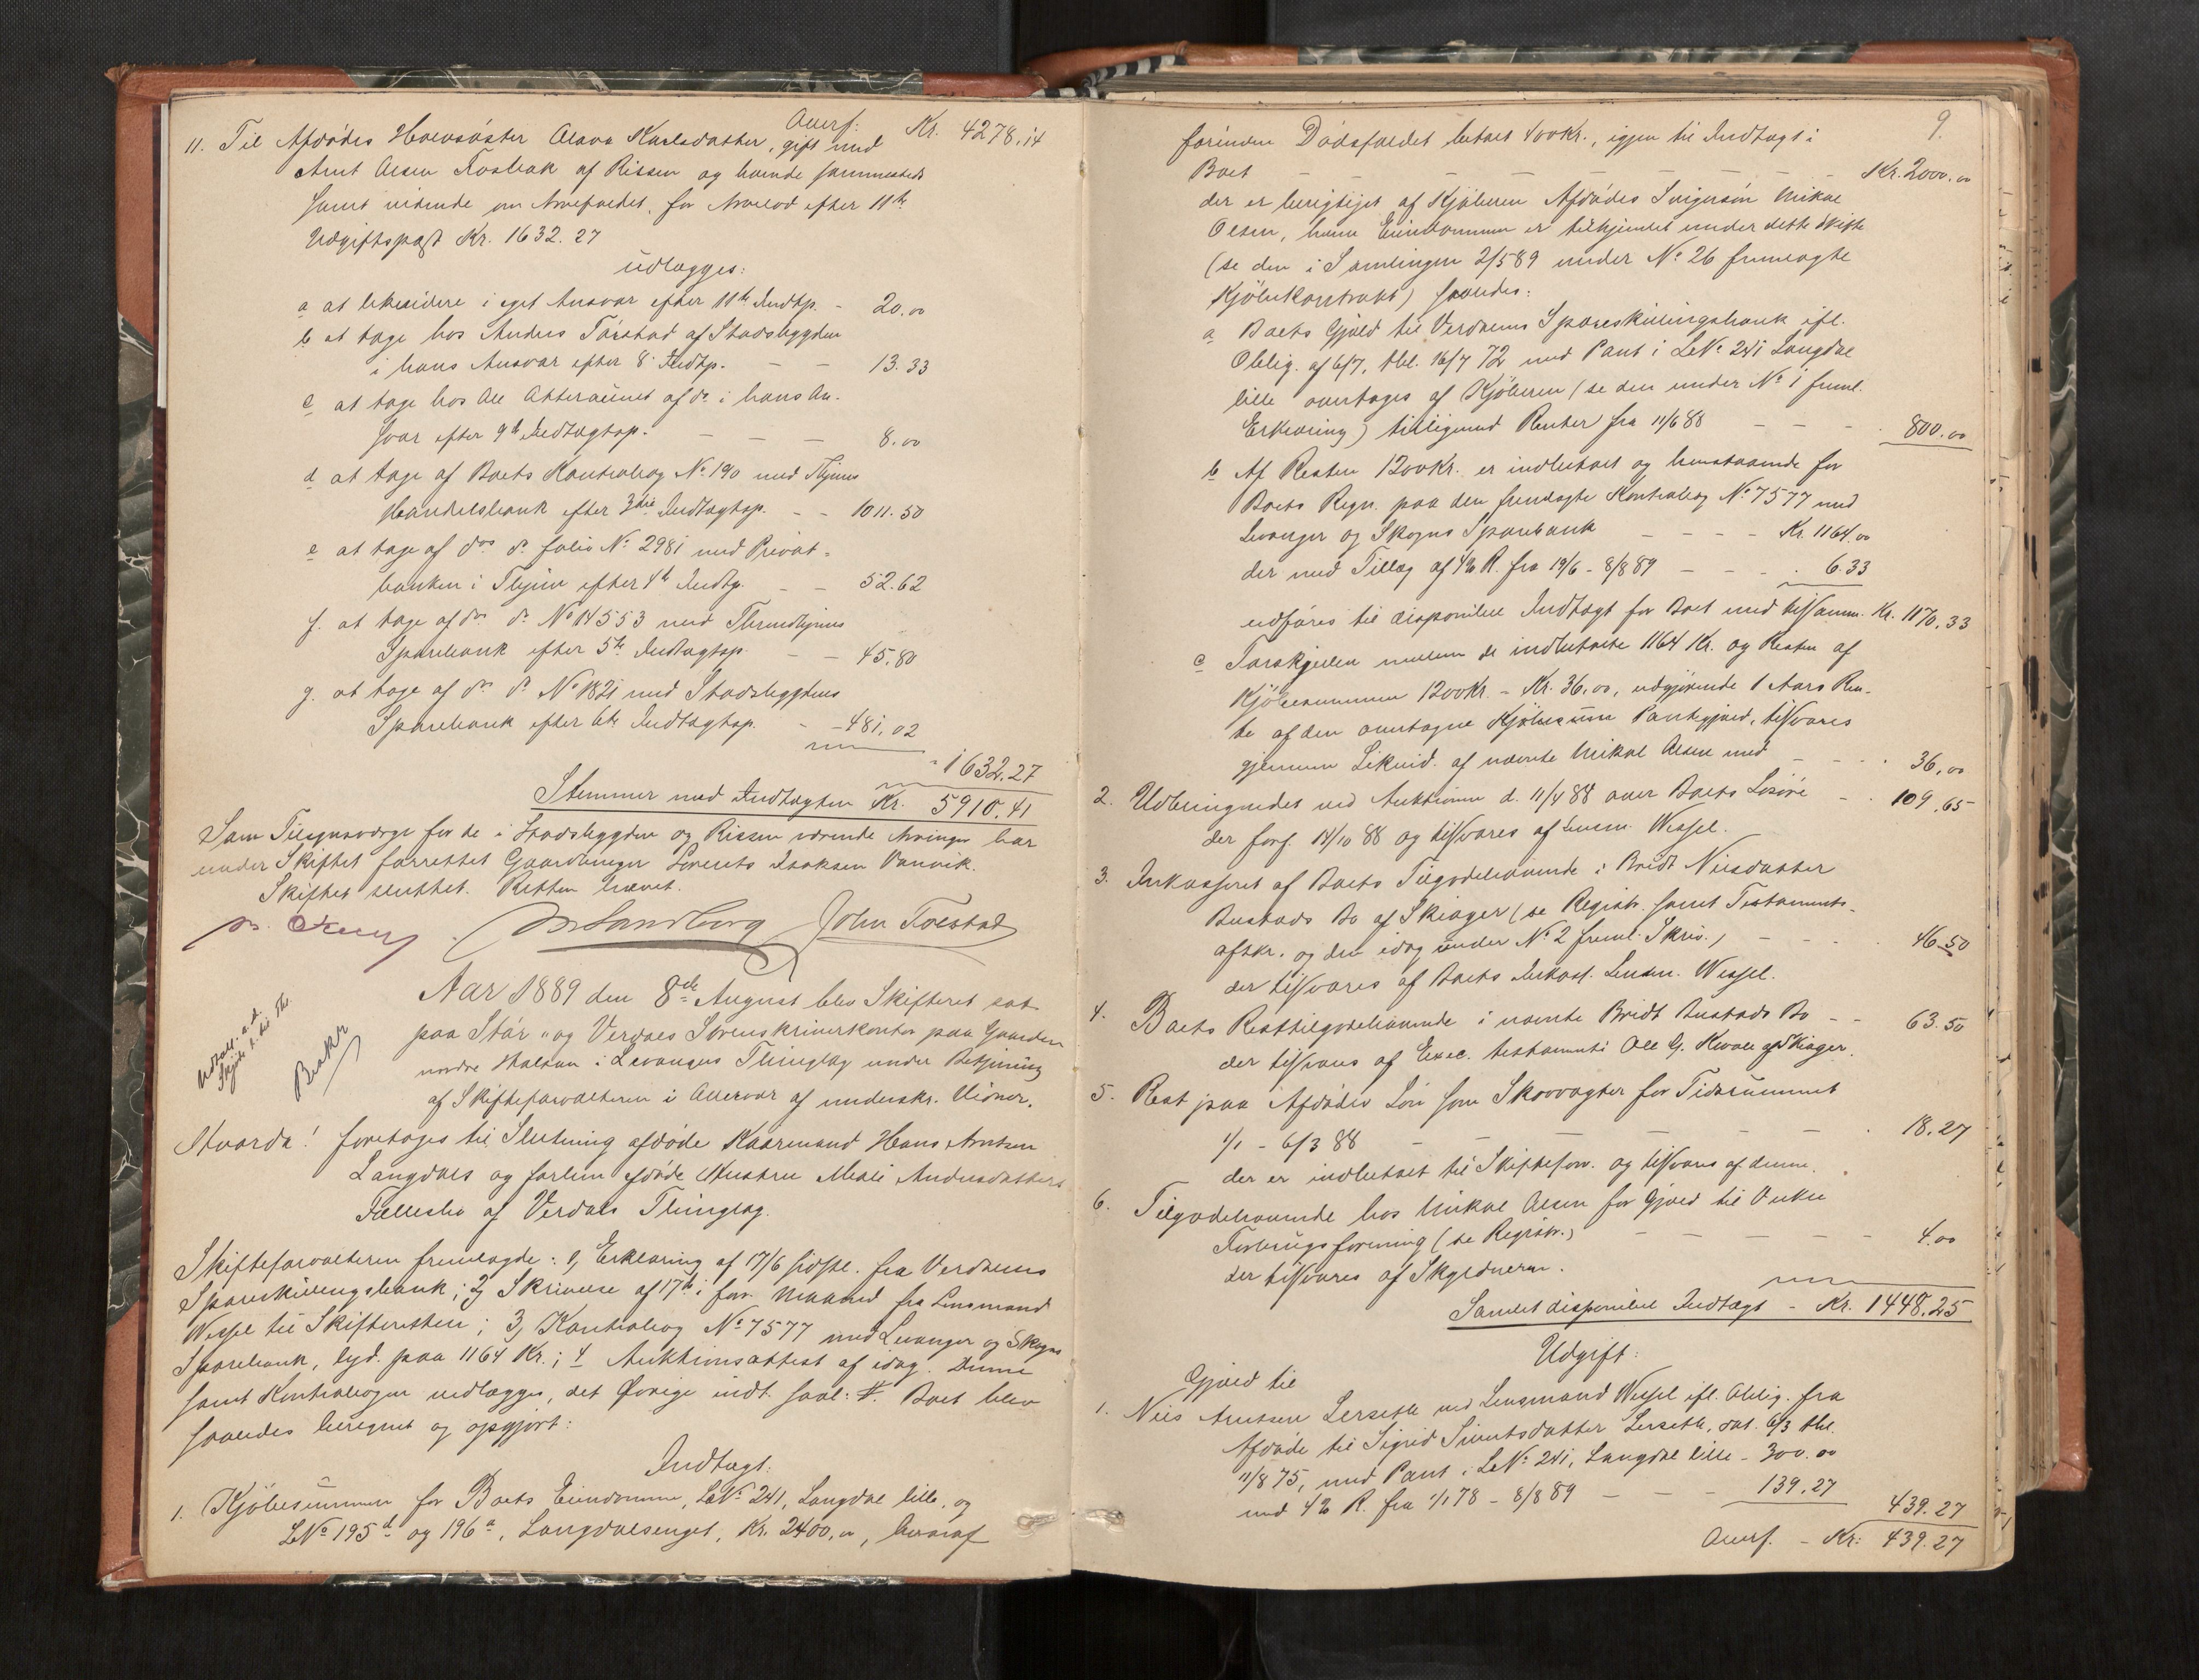 Overf: Kr. 4278.14
11. Til Afdødes Halvsøster Olava Karlsdatter, gift med
Arnt Olsen Fosbak af Rissen og hænde sammesteds
samt vidende om Arvefaldet, for Arvelod efter 11te
Udgiftspost Kr. 1632.27
udlægges:
a at likvidere i eget Ansvar efter 11te Indtp. - 20.00
b at tage hos Anders Tørstad af Stadsbygden
i hans Ansvar efter 8. Indtp. - - 13.33
c at tage hos Ole Olteraunet af do i hans An-
svar efter 9de Indtægtsp. - - - 8.00
d at tage af Boets Kontrabog No 190 med Thjems
Handelsbank efter 3die Indtægtsp. - - 1011.50
e at tage af dos do folio No 2981 med Privat-
banken i Thjem efter 4de Indtp. - - 52.62
f. at tage af dos do No 14553 med Throndhjems
Sparebank efter 5te Indtægtsp. - - 45.80
g. at tage af dos do No 1821 med Stadsbygdens
Sparebank efter 6te Indtægtsp. - - 481.02
- 1632.27
Stemmer med Indtægten Kr. 5910.41
Som Tilsynsværge for de i Stadsbygden og Rissen værende Arvinger har
under Skiftet forrettet Gaardbruger Lorents Isaksen Vanvik.
Skiftet sluttet. Retten hævet.
M Sandborg John Tolstad
Aar 1889 den 8de August blev Skifteret sat
paa Stør- og Verdals Sorenskriverkontor paa Gaarden
nordre Halsan i Levangers Thinglag under Betjening
af Skifteforvalteren i Overvær af underskr. Vidner.
Hvorda! foretoges til Slutning afdøde Kaarmand Hans Arntsen
Langdals og forlem afdøde Hustru Meali Andersdatters
Fællesbo af Verdals Thinglag.
Skifteforvalteren fremlagde: 1, Erklæring af 17/6 sidstl. fra Verdalens
Spareskillingsbank; 2, Skrivelse af 17de i forr. Maaned fra Lensmand
Wessel til Skifteretten; 3, Kontrabog No 7577 med Levanger og Skogns
Sparebank, lyd. paa 1164 Kr.; 4 Auktionsattest af idag. Denne
samt Kontrabogen vedlægges, det Øvrige indt. saal: #. Boet blev
saaledes beregnet og opgjort:
Indtægt:
1. Kjøbesummen for Boets Eiendomme, LNo 241, Langdal lille, og
LNo 195d og 196a, Langdalsenget, Kr. 2400.00, hvoraf
9.
forinden Dødsfaldet betalt 400 Kr., igjen til Indtægt i
Boet - - - - - - - Kr. 2000.00
der er berigtiget af Kjøberen Afdødes Svigersøn Mikal
Olsen, hvem Eiendommen er tilhjemlet under dette Skifte
(se den i Samlingen 2/5 89 under No 26 fremlagte
Kjøbekontrakt) saaledes:
a Boets Gjæld til Verdalens Spareskillingsbank ifl.
Oblig. af 6/7, thl. 16/7 72 med Pant i LNo 241 Langdal
lille overtages af Kjøberen (se den under No 1 freml.
Erklæring) tilligemed Renter fra 11/6 88 - - - 800.00
b Af Resten 1200 Kr. er indbetalt og henstaaende for
Boets Regn. paa den fremlagte Kontrabog No 7577 med
Levanger og Skogns Sparebank - - - - Kr. 1164.00
der med Tillæg af 4% R. fra 19/6 - 8/8 89 - - - 6.33
udføres til disponibel Indtægt for Boet med tilsamm. Kr. 1170.33
c Forskjellen mellem de indbetalte 1164 Kr. og Resten af
Kjøbesummen 1200 Kr. - Kr. 36.00, udgjørende 1 Aars Ren-
te af den overtagne Kjøbesum Pantegjæld, tilsvares
gjennem Likvid. af nævnte Mikal Olsen med - - - 36.00
2. Udbringendet ved Auktionen d. 11/4 88 over Boets Løsøre - - 109.65
der forf. 14/10 88 og tilsvares af Lensm. Wessel.
3. Inkasseret af Boets Tilgodehavende i Bridt Nilsdatter
Bustads Bo af Skioger (se Registr. samt Testaments-
afskr. og den idag under No 2 freml. Skriv.) - - - 46.50
der tilsvares af Boets Inkass. Lensm. Wessel.
4. Boets Resttilgodehavende i nævnte Bridt Bustads Bo - - 63.50
der tilsvares af Exec. testamenti Ole G. Kvale af Skioger.
5. Rest paa Afdødes Løn som Skovvogter for Tidsrummet
1/1 - 6/3 88 - - - - - - - 18.27
der er indbetalt til Skifteforv. og tilsvares af denne.
6. Tilgodehavende hos Mikal Olsen for Gjæld til Vuku
Forbrugsforening (se Registr.) - - - - - 4.00
der tilsvares af Skyldneren.
Samlet disponibel Indtægt - Kr. 1448.25
Udgift:
Gjæld til
1. Nils Arntsen Lerseth ved Lensmand Wessel ifl. Oblig. fra
Afdøde til Sigrid Sivertsdatter Lerseth, dat. 6/3 thl.
11/8 75, med Pant i LNo 241, Langdal lille - 300.00
med 4% R. fra 1/1 78 - 8/8 89 - - - 139.27
439.27
Overf. - Kr: 439.27